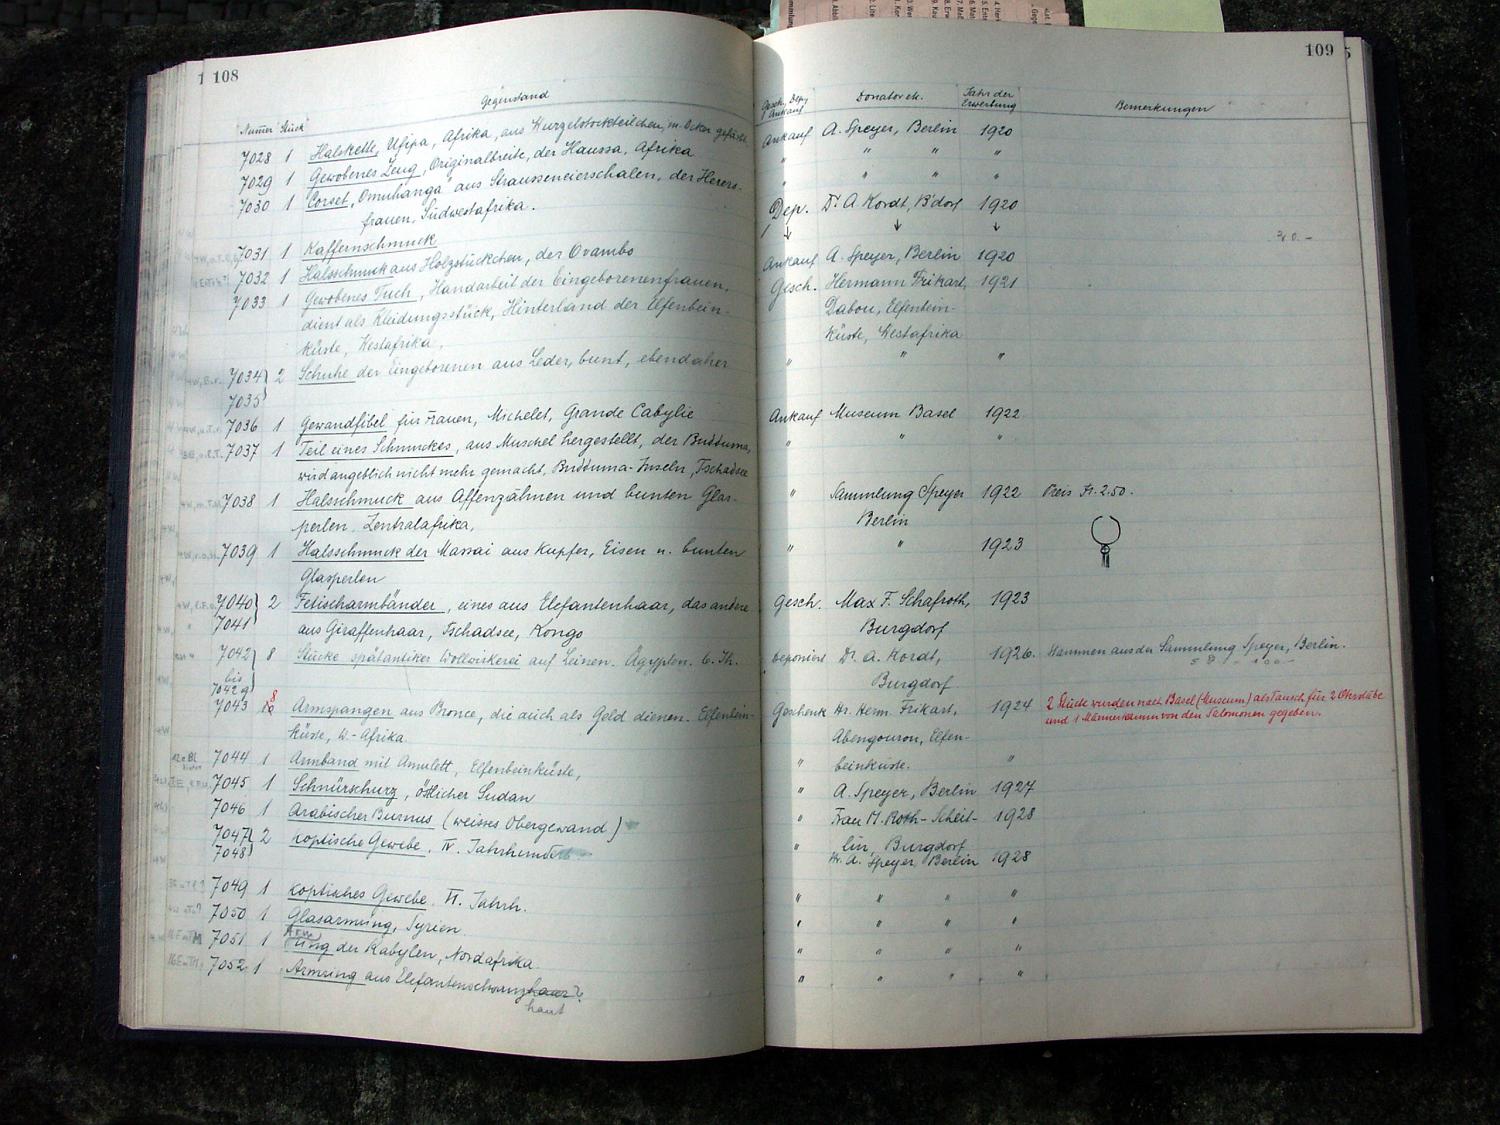 108
Gegenstand
Numer Stück
7028 1 Halskette, Ufipa, Afrika, aus Wurzelstockteilchen, m. Ocker gefärbt.
7029 1 Gewobenes Zeug, Originalbreite, der Haussa, Afrika
7030 1 Corset, "Omuhanga" aus Strausseneierschalen, der Herero-
frauen, Südwestafrika.
7031 1 Kaffernschmuck
7032 1 Halsschmuck aus Holzstückchen, der Ovambo
7033 1 Gewobenes Tuch, Handarbeit der Eingeborenenfrauen,
dient als Kleidungsstück, Hinterland der Elfenbein-
küste, Westafrika.
7034 2 Schuhe der Eingeborenen aus Leder, bunt, ebendaher
7035
7036 1 Gewandfibel für Frauen, Michelet, Grande Cabylie
7037 1 Teil eines Schmuckes, aus Muschel hergestellt, der Budduma,
wird angeblich nicht mehr gemacht, Budduma-Inseln, Tschadsee
7038 1 Halsschmuck aus Affenzähnen und bunten Glas-
perlen. Zentralafrika,
7039 1 Halsschmuck der Massai aus Kupfer, Eisen u. bunten
Glasperlen
7040 2 Fetischarmbänder, eines aus Elefantenhaar, das andere
7041 aus Giraffenhaar, Tschadsee, Kongo
7042 8 Stücke spätantiker Wollwirkerei auf Leinen. Ägypten. 6. Jh.
bis
7042 g
7043 8 Armspangen aus Bronce, die auch als Geld dienen. Elfenbein-
küste, W.-Afrika
7044 1 Armband mit Amulett, Elfenbeinküste,
7045 1 Schnürschurz, östlicher Sudan
7046 1 Arabischer Burnus (weisses Obergewand)
7047 2 koptische Gewebe. IV. Jahrhundert
7048
7049 1 koptisches Gewebe. VI. Jahrh.
7050 1 Glasarmring, Syrien.
7051 1 Armring der Kabylen, Nordafrika
7052 1 Armring aus Elefantenschwanzhaar?
haut
109
Gesch, Dep, Ankauf Donator etc. Jahr der Erwerbung Bemerkungen
Ankauf A. Speyer, Berlin 1920
" " " "
" " " "
Dep. Dr A. Kordt, B'dorf 1920
Ankauf A. Speyer, Berlin 1920
Gesch. Hermann Frikart, 1921
Dabou, Elfenbein-
küste, Westafrika
" " "
Ankauf Museum Basel 1922
" " "
" Sammlung Speyer 1922 Preis Fr. 2.50.
Berlin
" " 1923
Gesch. Max F. Schafroth, 1923
Burgdorf
deponiert Dr. A. Kordt, 1926. Stammen aus der Sammlung Speyer, Berlin.
Burgdorf
Geschenk Hr. Herm. Frikart, 1924 2 Stücke wurden nach Basel (Museum) als Tausch für 2 Ohrstäbe
und 1 Männerkamm von den Salomonen gegeben.
Abengourou, Elfen-
" beinküste. "
" A. Speyer, Berlin 1927
" Frau M. Roth-Scheit- 1928
lin, Burgdorf
" Hr. A. Speyer, Berlin 1928
" " " "
" " " "
" " " "
" " " "